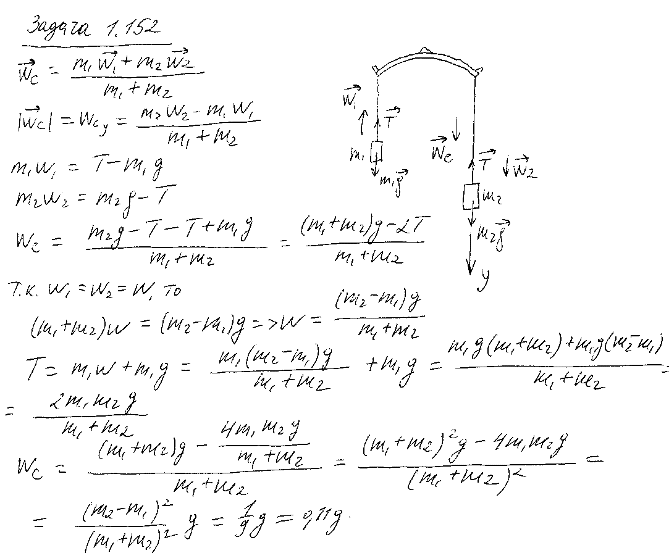 Задача 1.152
W⃗c = (m₁W⃗₁ + m₂W⃗₂)/(m₁ + m₂)
|W⃗c| = Wcy = (m₂W₂ - m₁W₁)/(m₁ + m₂)
m₁W₁ = T - m₁g
m₂W₂ = m₂g - T
Wc = (m₂g - T - T + m₁g)/(m₁ + m₂) = ((m₁ + m₂)g - 2T)/(m₁ + m₂)
Т.к. W₁ = W₂ = W, то
(m₁ + m₂)W = (m₂ - m₁)g => W = (m₂ - m₁)g/(m₁ + m₂)
T = m₁W + m₁g = m₁(m₂ - m₁)g/(m₁ + m₂) + m₁g = (m₁g(m₁ + m₂) + m₁g(m₂ - m₁))/(m₁ + m₂) =
= 2m₁m₂g/(m₁ + m₂)
Wc = ((m₁ + m₂)g - 4m₁m₂g/(m₁ + m₂))/(m₁ + m₂) = ((m₁ + m₂)²g - 4m₁m₂g)/(m₁ + m₂)² =
= (m₂ - m₁)²/(m₁ + m₂)² g = 1/9 g = 0,11g
W⃗₁
T⃗
m₁
m₁g⃗
W⃗c
T⃗
W⃗₂
m₂
m₂g⃗
y